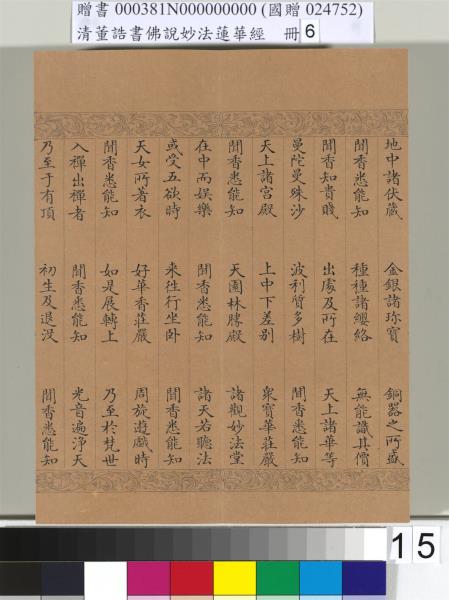 贈書 000381N000000000 (國贈 024752)
清董誥書佛說妙法蓮華經 冊 6
地中諸伏藏 金銀諸珍寶 銅器之所盛
聞香悉能知 種種諸纓絡 無能識其價
聞香知貴賤 出處及所在 天上諸華等
曼陀曼殊沙 波利質多樹 聞香悉能知
天上諸宮殿 上中下差別 眾寶華莊嚴
聞香悉能知 天園林勝殿 諸觀妙法堂
在中而娛樂 聞香悉能知 諸天若聽法
或受五欲時 來往行坐臥 聞香悉能知
天女所著衣 好華香莊嚴 周旋遊戲時
聞香悉能知 如是展轉上 乃至於梵世
入禪出禪者 聞香悉能知 光音遍淨天
乃至于有頂 初生及退沒 聞香悉能知
15